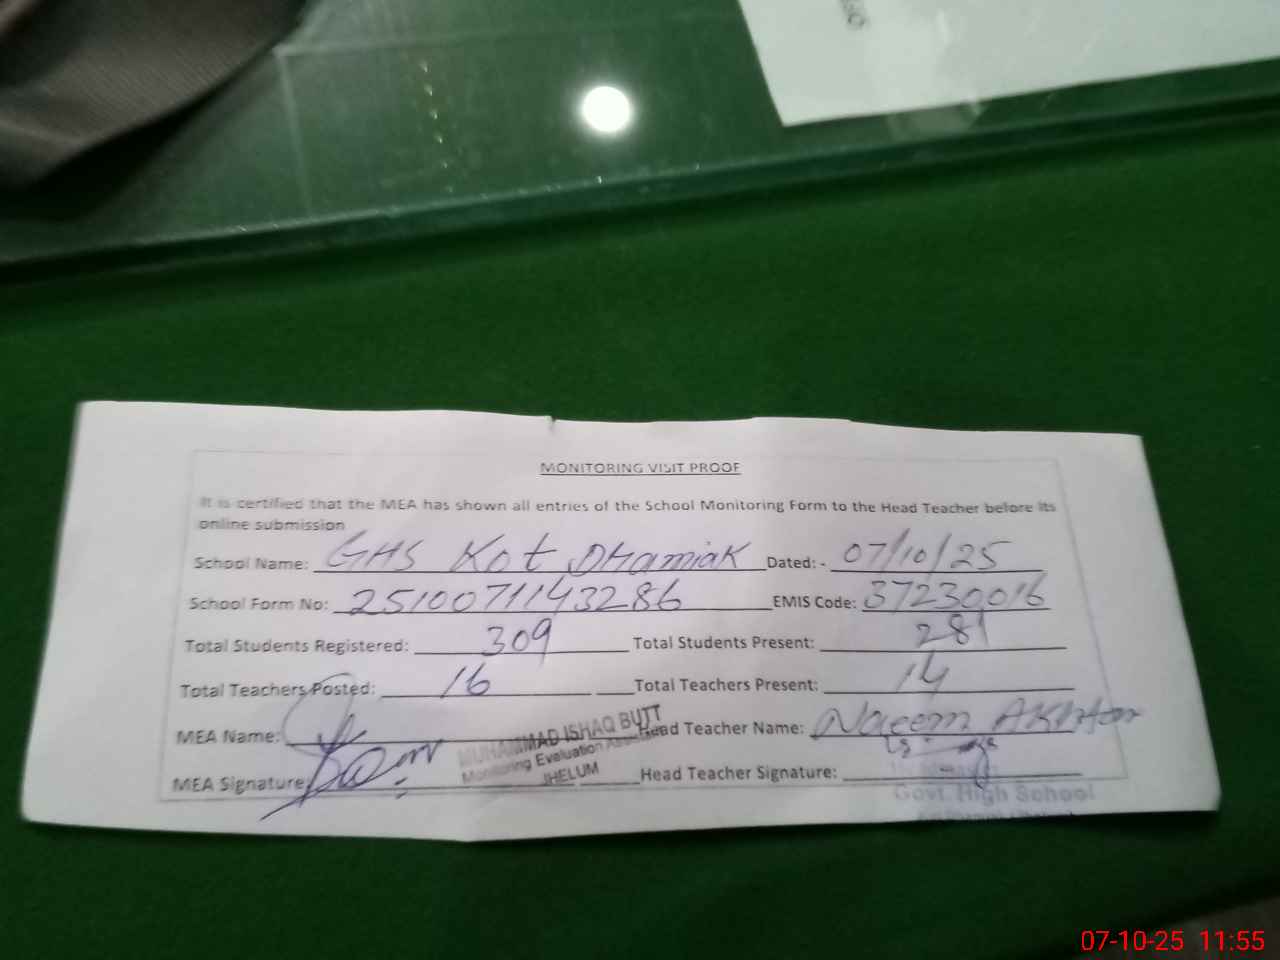 MONITORING VISIT PROOF
It is certified that the MEA has shown all entries of the School Monitoring Form to the Head Teacher before its
online submission
School Name: GHS Kot Dhamiak Dated: - 07/10/25
School Form No: 2510071143286 EMIS Code: 37230016
Total Students Registered: 309 Total Students Present: 281
Total Teachers Posted: 16 Total Teachers Present: 14
MEA Name: Head Teacher Name: Naeem Akhtar
MUHAMMAD ISHAQ BUTT
Monitoring Evaluation Assistant
JHELUM
MEA Signature: Head Teacher Signature:
Govt. High School
07-10-25 11:55